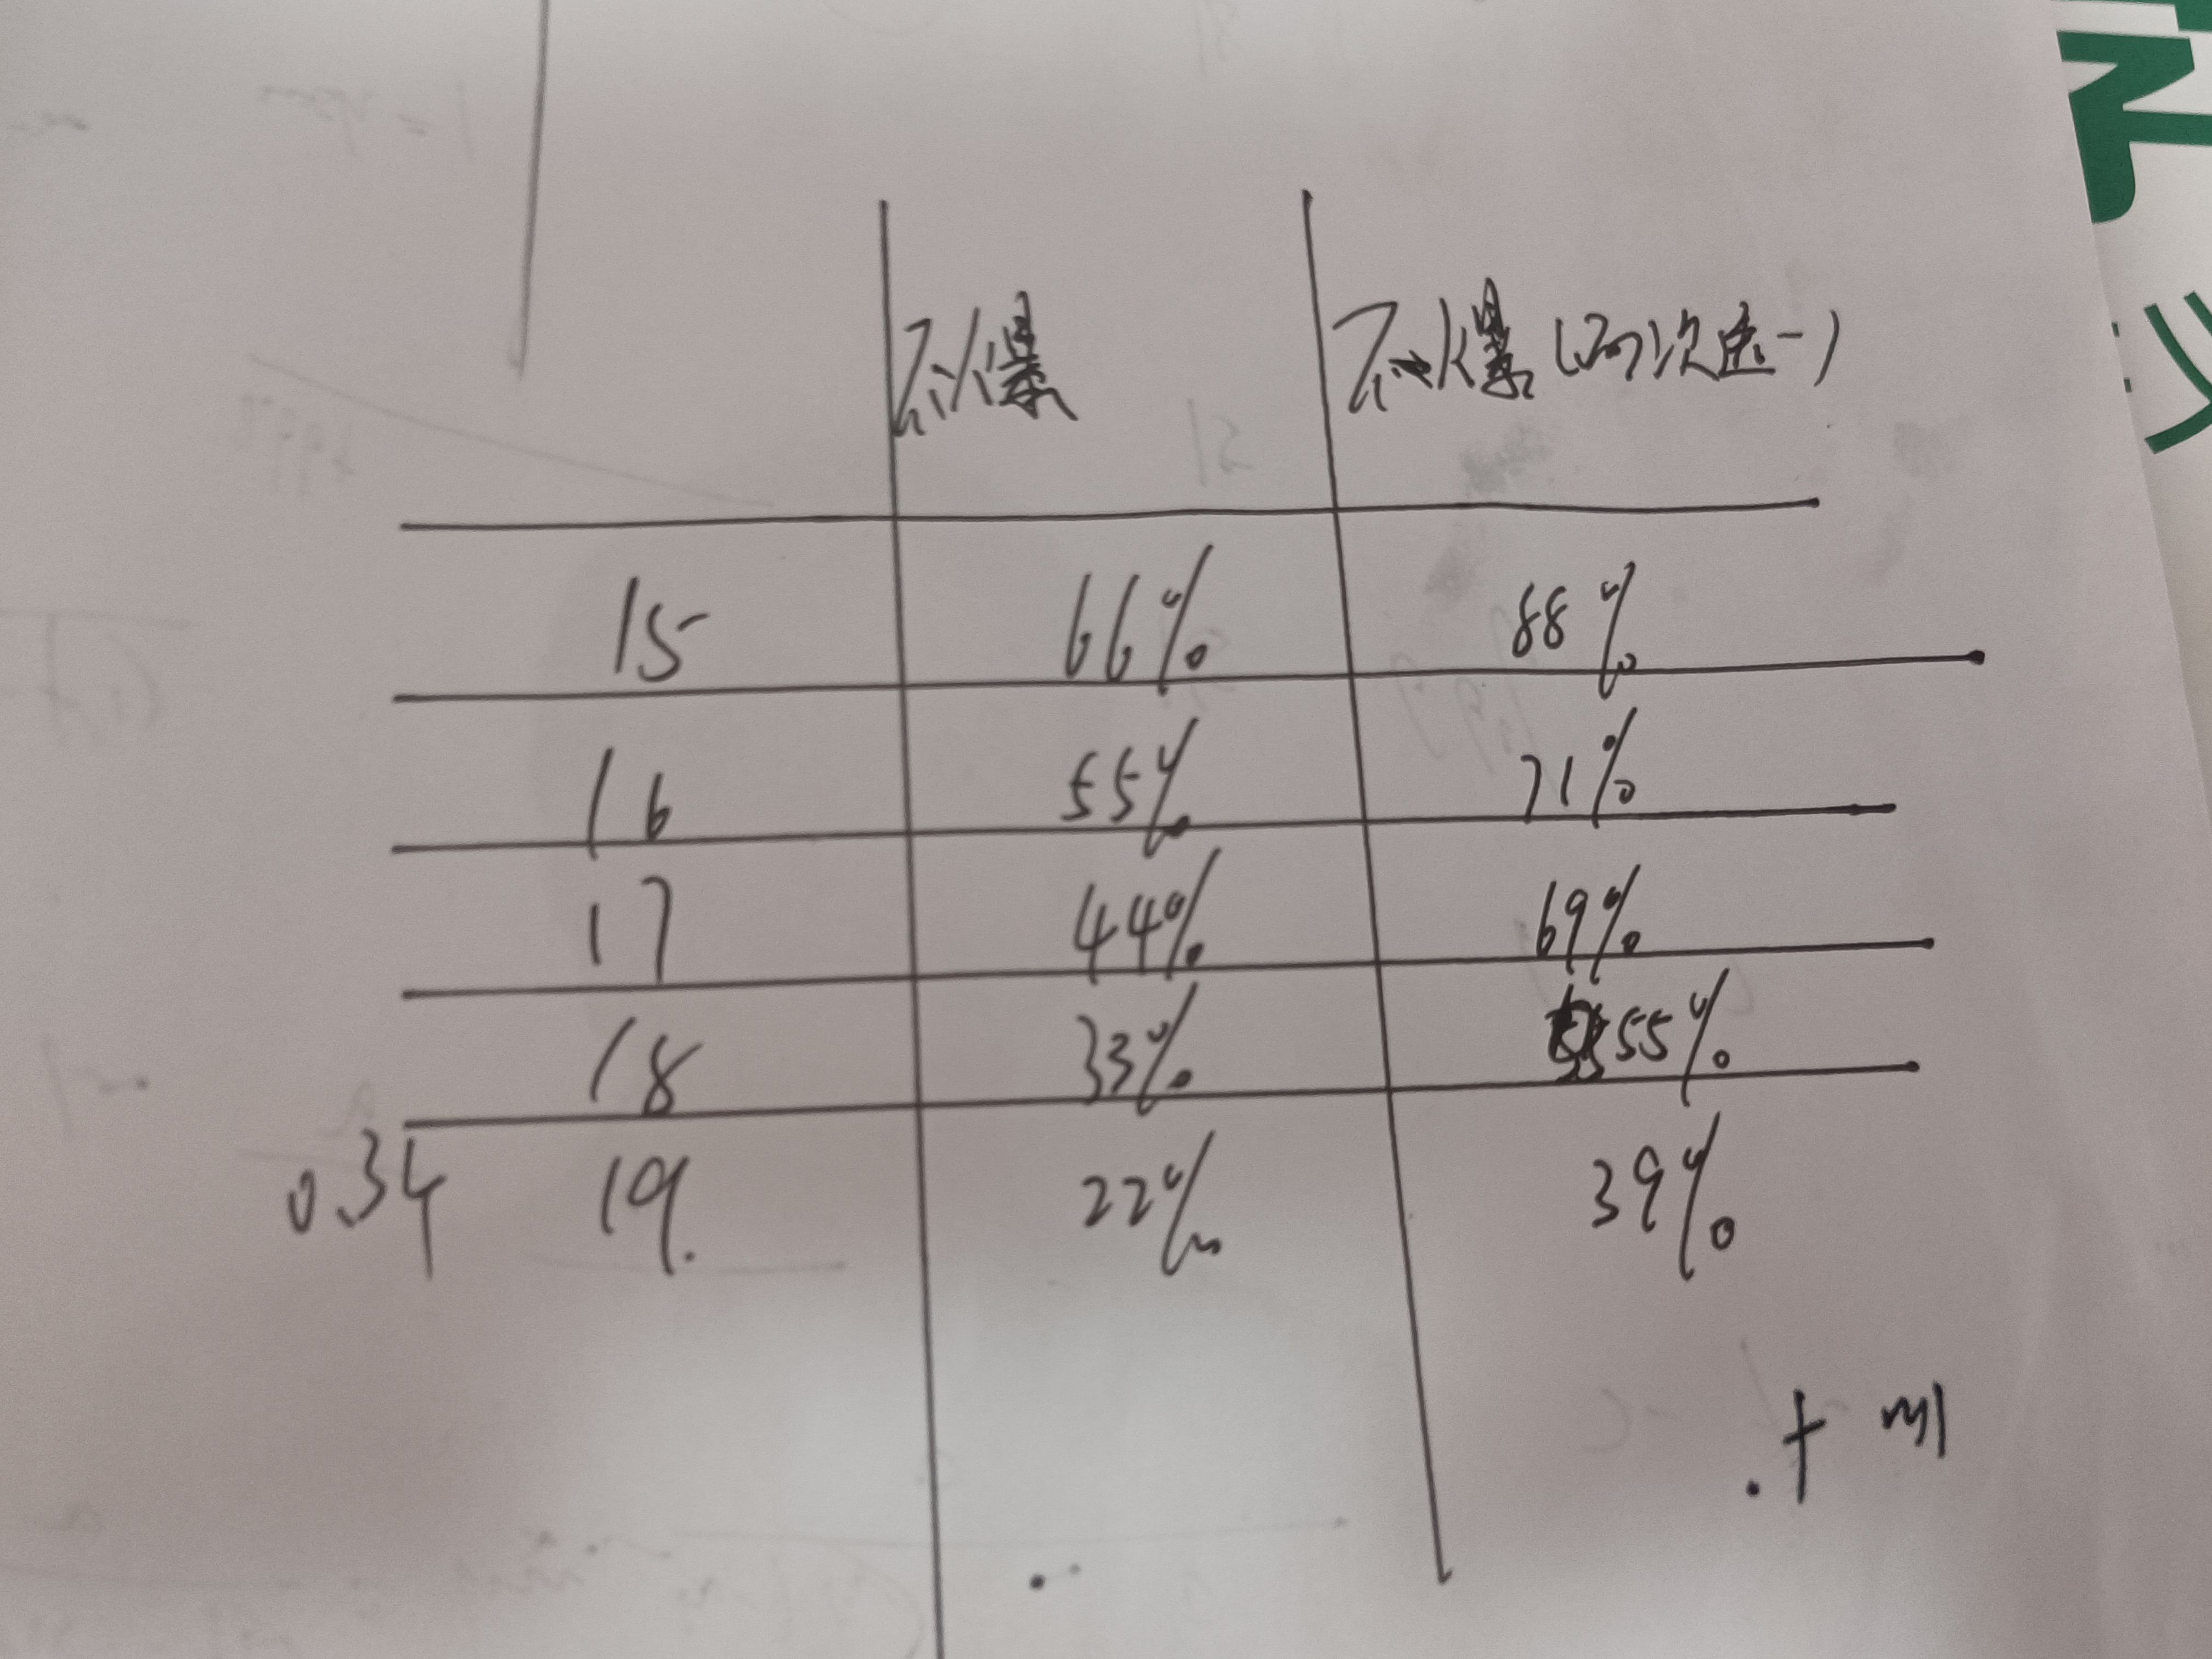 不爆 不爆(两次选一)
15 66% 88%
16 55% 71%
17 44% 69%
18 33% 55%
0.34 19. 22% 39%